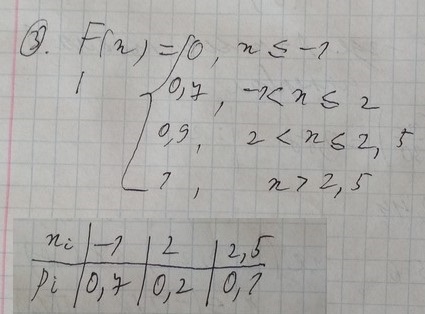 3. F(x) = { 0, x ≤ -1
0,7, -1 < x ≤ 2
0,9, 2 < x ≤ 2,5
1, x > 2,5
xi | -1 | 2 | 2,5
pi | 0,7 | 0,2 | 0,1